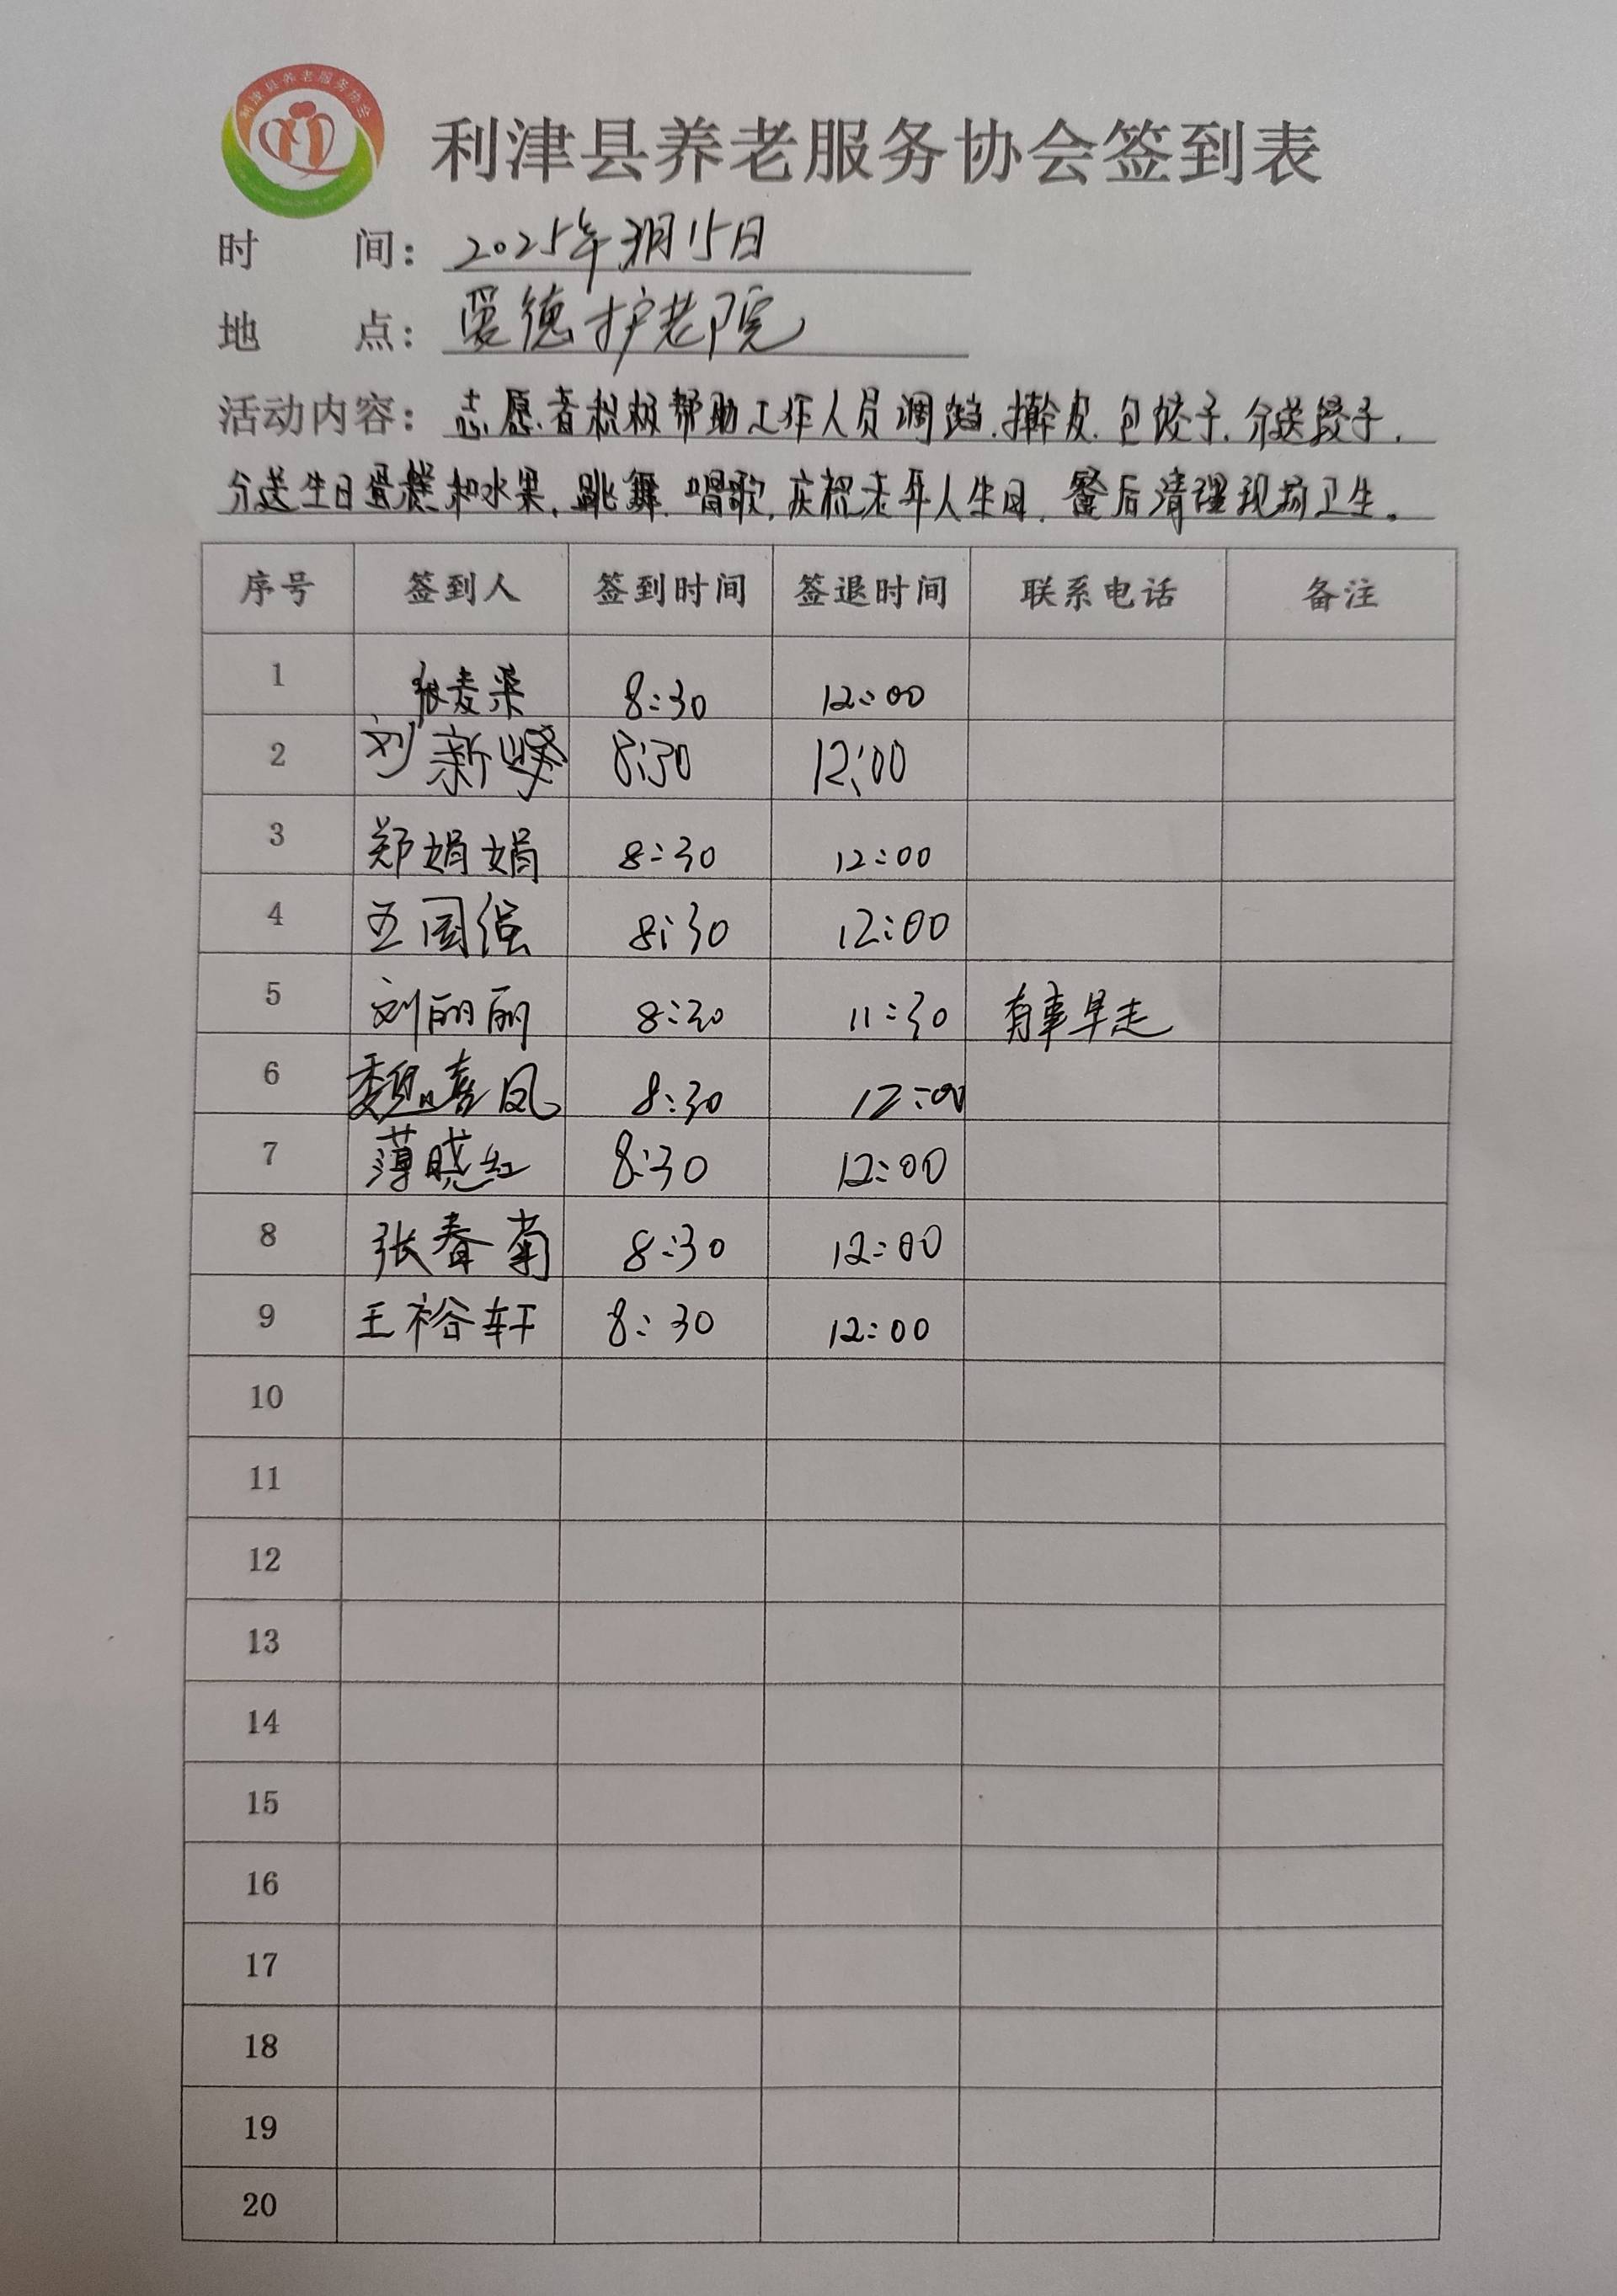 利津县养老服务协会
利津县养老服务协会签到表
时 间: 2025年3月15日
地 点: 爱德护老院
活动内容: 志愿者积极帮助工作人员调馅、擀皮、包饺子、分送饺子、
分送生日蛋糕和水果、跳舞、唱歌、庆祝老年人生日、餐后清理现场卫生。
序号 签到人 签到时间 签退时间 联系电话 备注
1 张麦 8:30 12:00
2 刘新峰 8:30 12:00
3 郑娟娟 8:30 12:00
4 王国强 8:30 12:00
5 刘丽丽 8:30 11:30 有事早走
6 魏喜凤 8:30 12:00
7 薄晓红 8:30 12:00
8 张春菊 8:30 12:00
9 王裕轩 8:30 12:00
10
11
12
13
14
15
16
17
18
19
20